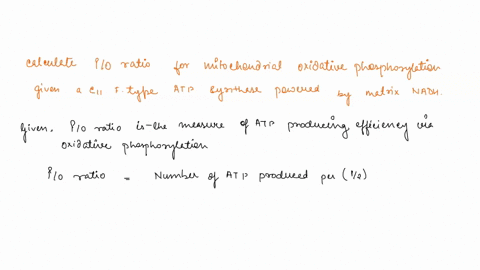 calculate P/O ratio for mitochondrial oxidative phosphorylation
given a C11 F-type ATP synthase powered by matrix NADH.
Given. P/O ratio is the measure of ATP producing efficiency via
oxidative phosphorylation
P/O ratio = Number of ATP produced per (1/2)